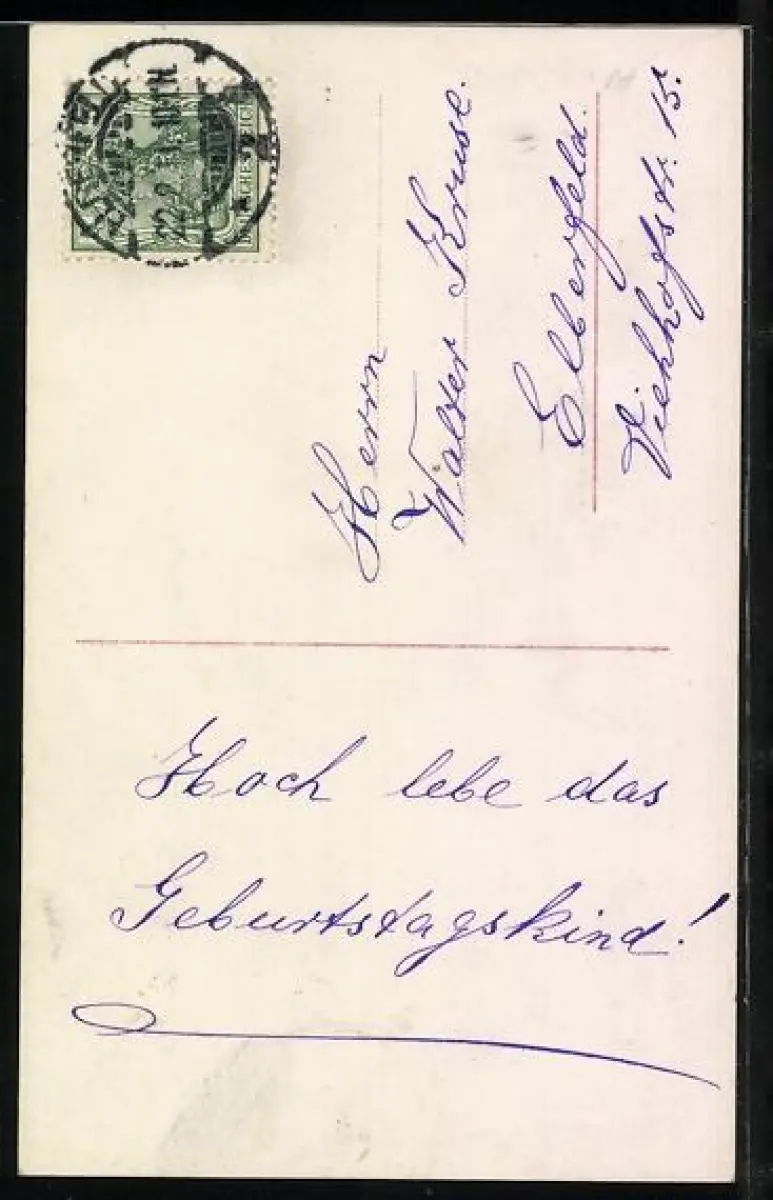 Herrn
Walter Kruse.
Elberfeld.
Viehhofstr. 15.
Hoch lebe das
Geburtstagskind!